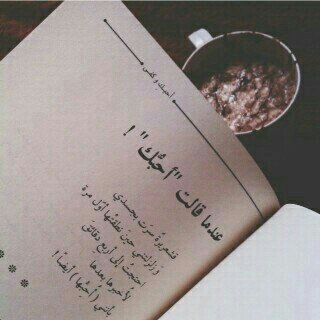 أحبك وكفى
عندما قالت "أحبُّك" !
قشعريرةٌ سرت بجسدي
وزلزلتني حين نطقتْها أوّل مرة
احتجتُ إلى أربع دقائق
لأخبرها بعدها
بأنني (أحبُّها) أيضاً !
* * *